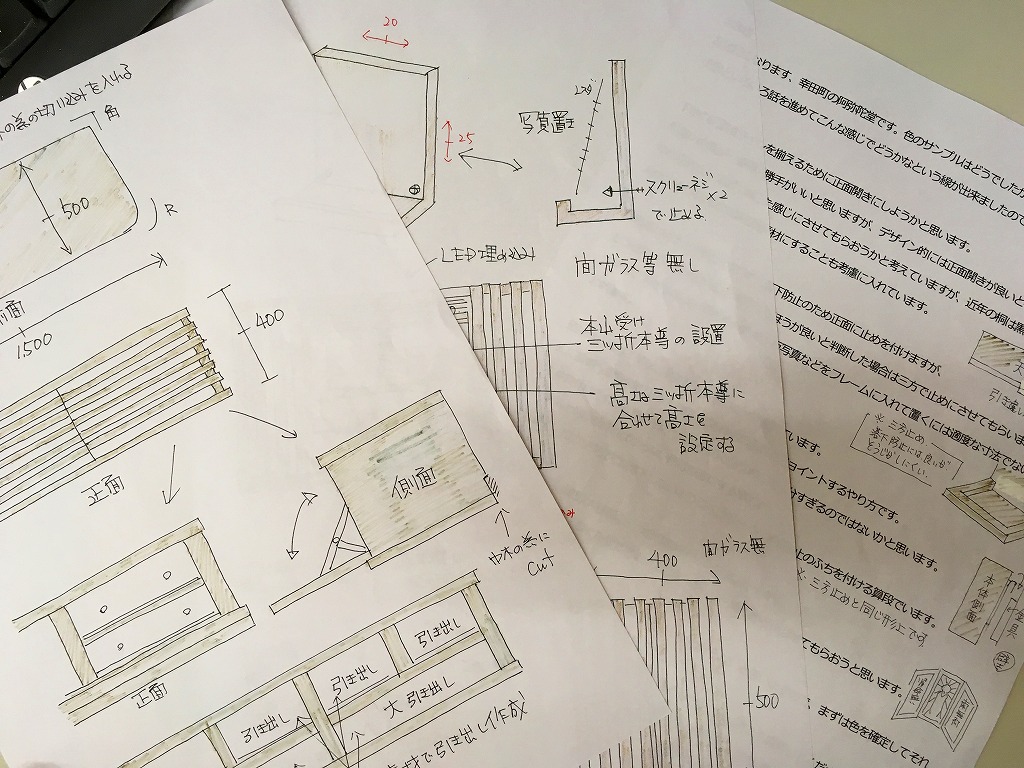 の為の切り込みを入れる
角
500
R
面
1500
400
正面
側面
巾木の為に
cut
正面
引き出し
引き出し
引き出し
大 引き出し
で引き出し作成
20
25
写真置き
スクリューネジ×2
で止める
LED埋め込み
面ガラス等無し
本山受け
三ツ折本尊の設置
高さは三ツ折本尊に
合わせて高さを
設定する
400
面ガラス無
500
なります、幸田町の阿弥陀堂です。色のサンプルはどうでした
る話を進めてこんな感じでどうかなという線が出来ましたので
を揃えるために正面開きにしようかと思います。
勝手がいいと思いますが、デザイン的には正面開きが良いと
感じにさせてもらおうかと考えていますが、近年の桐は
材にすることも考慮に入れています。
下防止のため正面に止めを付けますが、
ほうが良いと判断した場合は三方で止めにさせてもらいま
写真などをフレームに入れて置くには適度な寸法でな
※三方止め
落下防止には良いが
そうじがしにくい。
います。
ョイントするやり方です。
すぎるのではないかと思います。
のふちを付ける算段でいます。
※三方止めと同じ形状です。
本体側面
金具
てもらおうと思います。
まずは色を確定してそれ